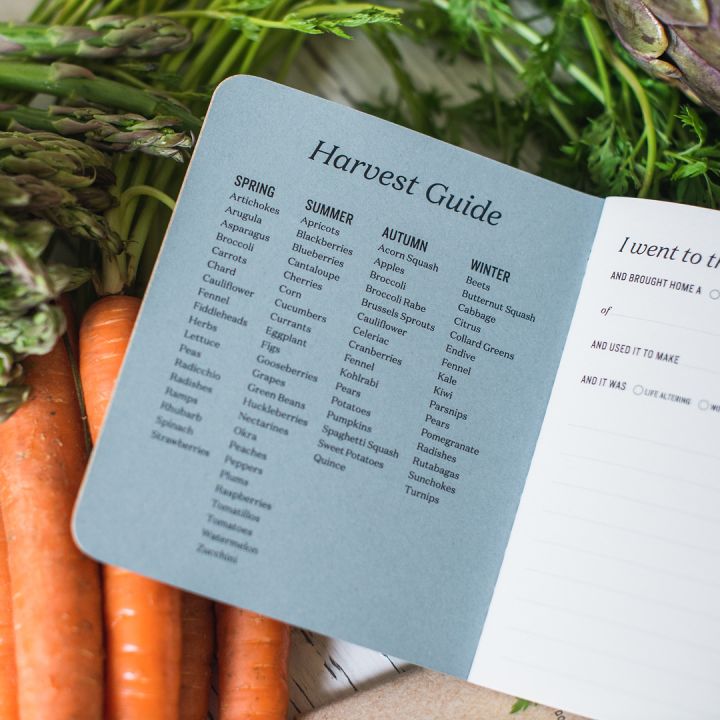 Harvest Guide
SPRING
Artichokes
Arugula
Asparagus
Broccoli
Carrots
Chard
Cauliflower
Fennel
Fiddleheads
Herbs
Lettuce
Peas
Radicchio
Radishes
Ramps
Rhubarb
Spinach
Strawberries
SUMMER
Apricots
Blackberries
Blueberries
Cantaloupe
Cherries
Corn
Cucumbers
Currants
Eggplant
Figs
Gooseberries
Grapes
Green Beans
Huckleberries
Nectarines
Okra
Peaches
Peppers
Plums
Raspberries
Tomatillos
Tomatoes
Watermelon
Zucchini
AUTUMN
Acorn Squash
Apples
Broccoli
Broccoli Rabe
Brussels Sprouts
Cauliflower
Celeriac
Cranberries
Fennel
Kohlrabi
Pears
Potatoes
Pumpkins
Spaghetti Squash
Sweet Potatoes
Quince
WINTER
Beets
Butternut Squash
Cabbage
Citrus
Collard Greens
Endive
Fennel
Kale
Kiwi
Parsnips
Pears
Pomegranate
Radishes
Rutabagas
Sunchokes
Turnips
I went to th
AND BROUGHT HOME A
of
AND USED IT TO MAKE
AND IT WAS LIFE ALTERING